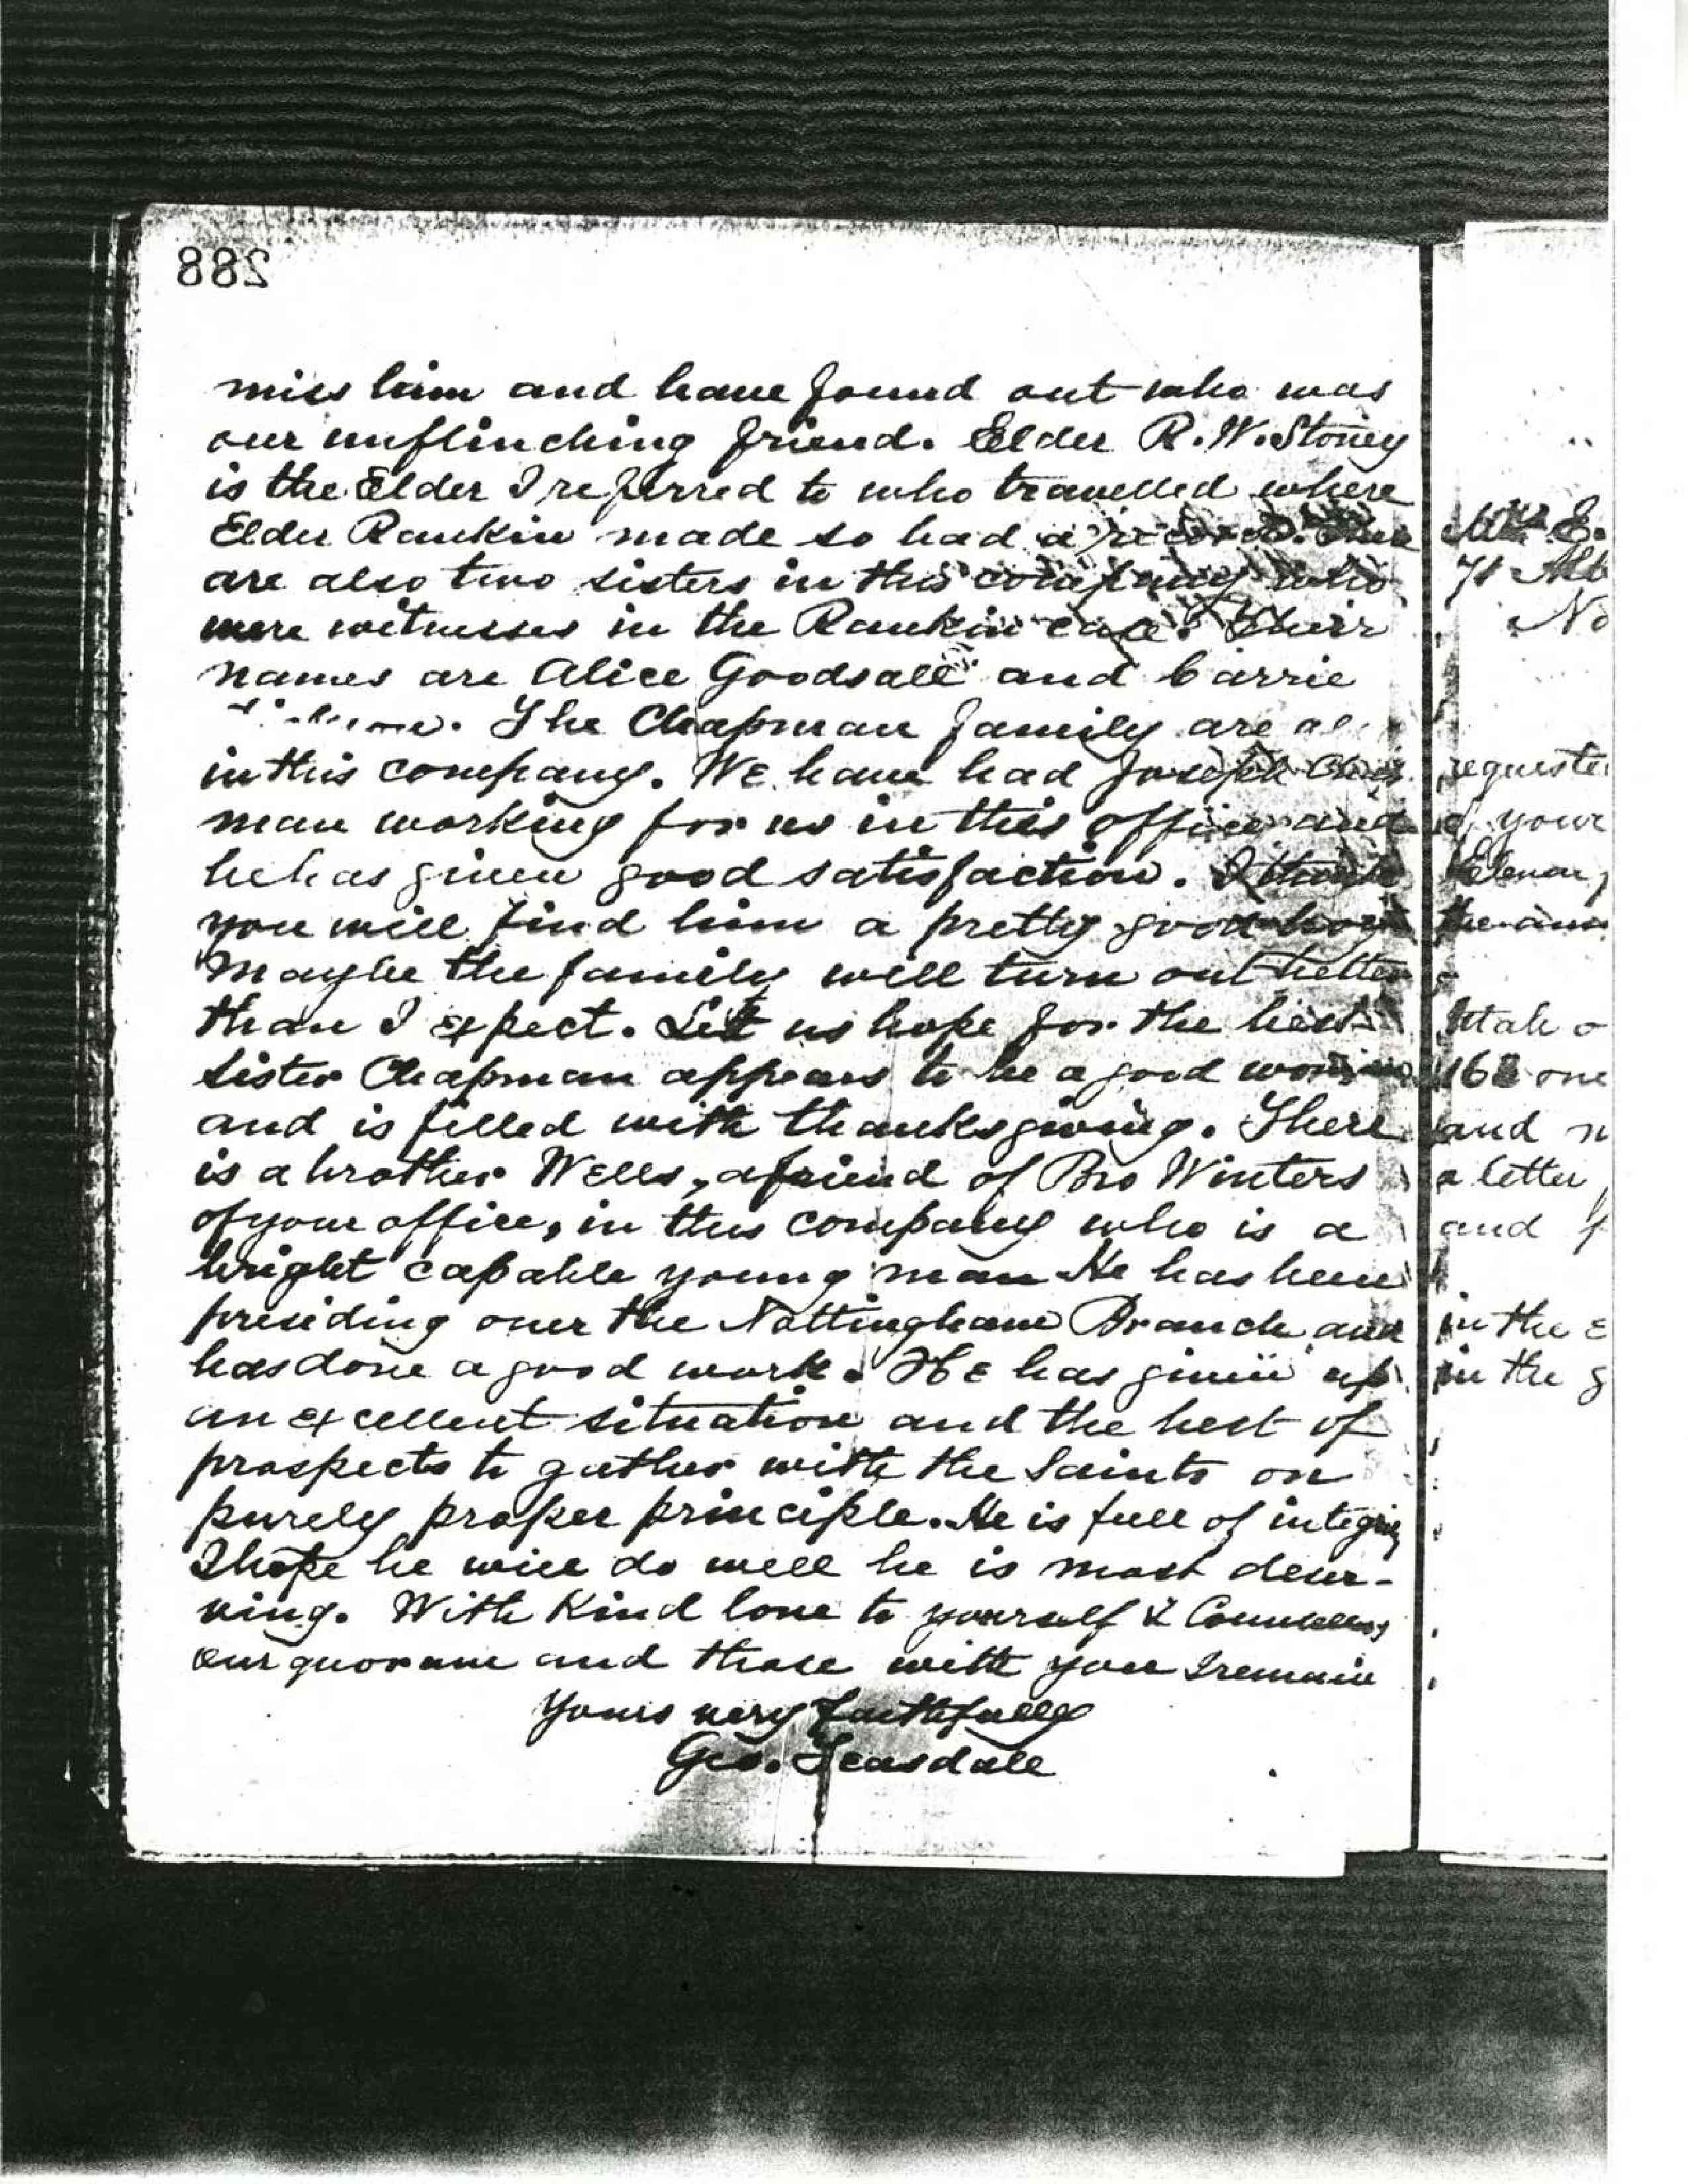 288
miss him and have found out who was
our unflinching friend. Elder R. W. Stoney
is the Elder I referred to who travelled where
Elder Rankin made so bad a record. There
are also two sisters in this company who
were witnesses in the Rankin case. Their
names are Alice Goodsall and Carrie
The Chapman family are
in this company. We have had Joseph Chap
man working for us in this office and
he has given good satisfaction. I think
you will find him a pretty good boy
Maybe the family will turn out better
than I expect. Let us hope for the best
Sister Chapman appears to be a good woman
and is filled with thanksgiving. There
is a brother Wells, a friend of Bro Winters
of your office, in this company who is a
bright capable young man He has been
presiding over the Nottingham Branch and
has done a good work. He has given up
an excellent situation and the best of
prospects to gather with the Saints on
purely proper principle. He is full of integrity
I hope he will do well he is most deser-
ving. With Kind love to yourself & Counselors
our quorum and those with you I remain
Yours very faithfully
Geo. Teasdale
71 Alb
No
requeste
of your
Utah o
one
and n
a letter
and f
in the
in the g